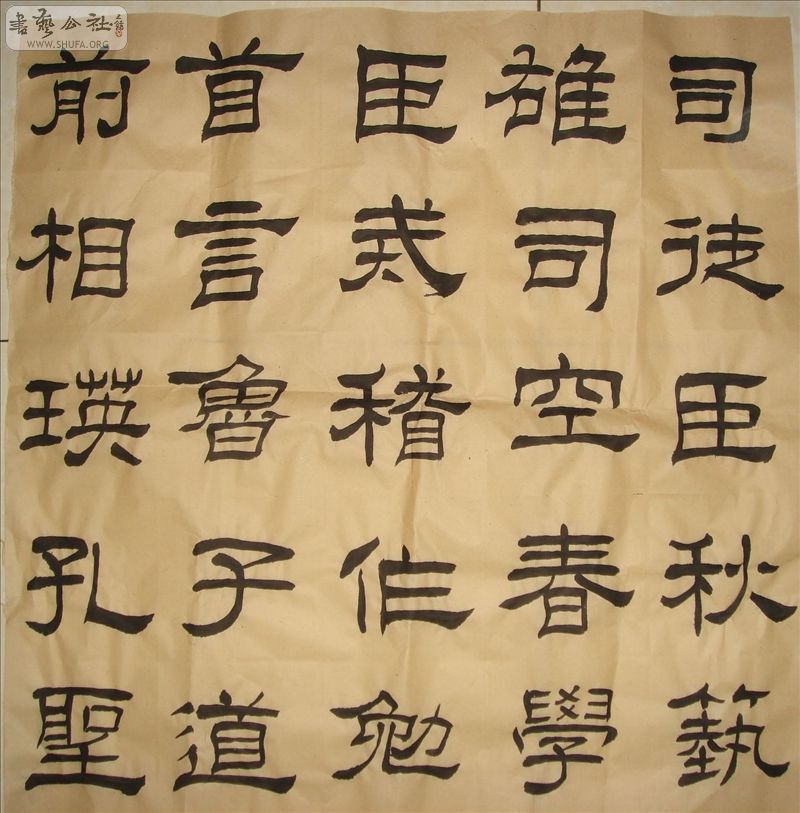 書藝公社
WWW.SHUFA.ORG
司徒臣
雄司空
臣戒稽
首言魯
前相瑛
孔子作春秋
聖道勉學藝